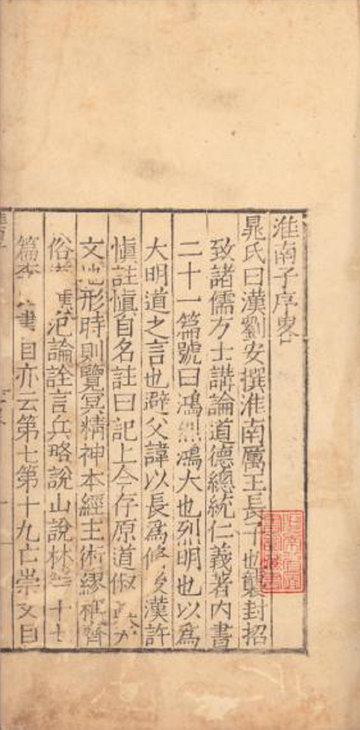 淮南子序畧
晁氏曰漢劉安撰淮南厲王長子也襲封招
致諸儒方士講論道德總統仁義著内書
二十一篇號曰鴻烈鴻大也烈明也以爲
大明道之言也避父諱以長爲脩後漢許
慎註慎自名註曰記上今存原道俶真天
文地形時則覽冥精神本經主術繆稱齊
俗道應氾論詮言兵略說山說林等十七
篇李 書目亦云第七第十九亡崇文曰